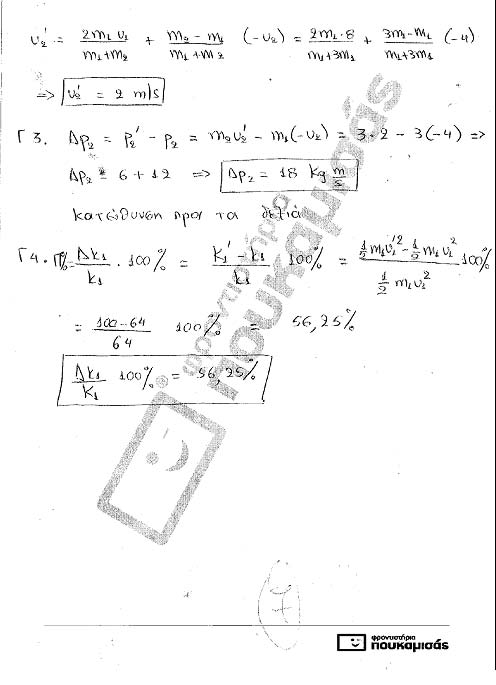 υ₂' = 2m₁υ₁/(m₁+m₂) + (m₂-m₁)/(m₁+m₂) (-υ₂) = 2m₁·8/(m₁+3m₁) + (3m₁-m₁)/(m₁+3m₁) (-4)
=> υ₂' = 2 m/s
Γ3. Δp₂ = p₂' - p₂ = m₂υ₂' - m₁(-υ₂) = 3·2 - 3(-4) =>
Δp₂ = 6+12 => Δp₂ = 18 Kg m/s
κατεύθυνση προς τα δεξιά
Γ4. Π% = Δk₁/k₁ · 100% = (k₁' - k₁)/k₁ 100% = (½ m₁υ₁'² - ½ m₁υ₁²)/(½ m₁υ₁²) 100%
= (100-64)/64 100% = 56,25%
Δk₁/k₁ 100% = 56,25%
φροντιστήρια πουκαμισάς
7
φροντιστήρια
πουκαμισάς